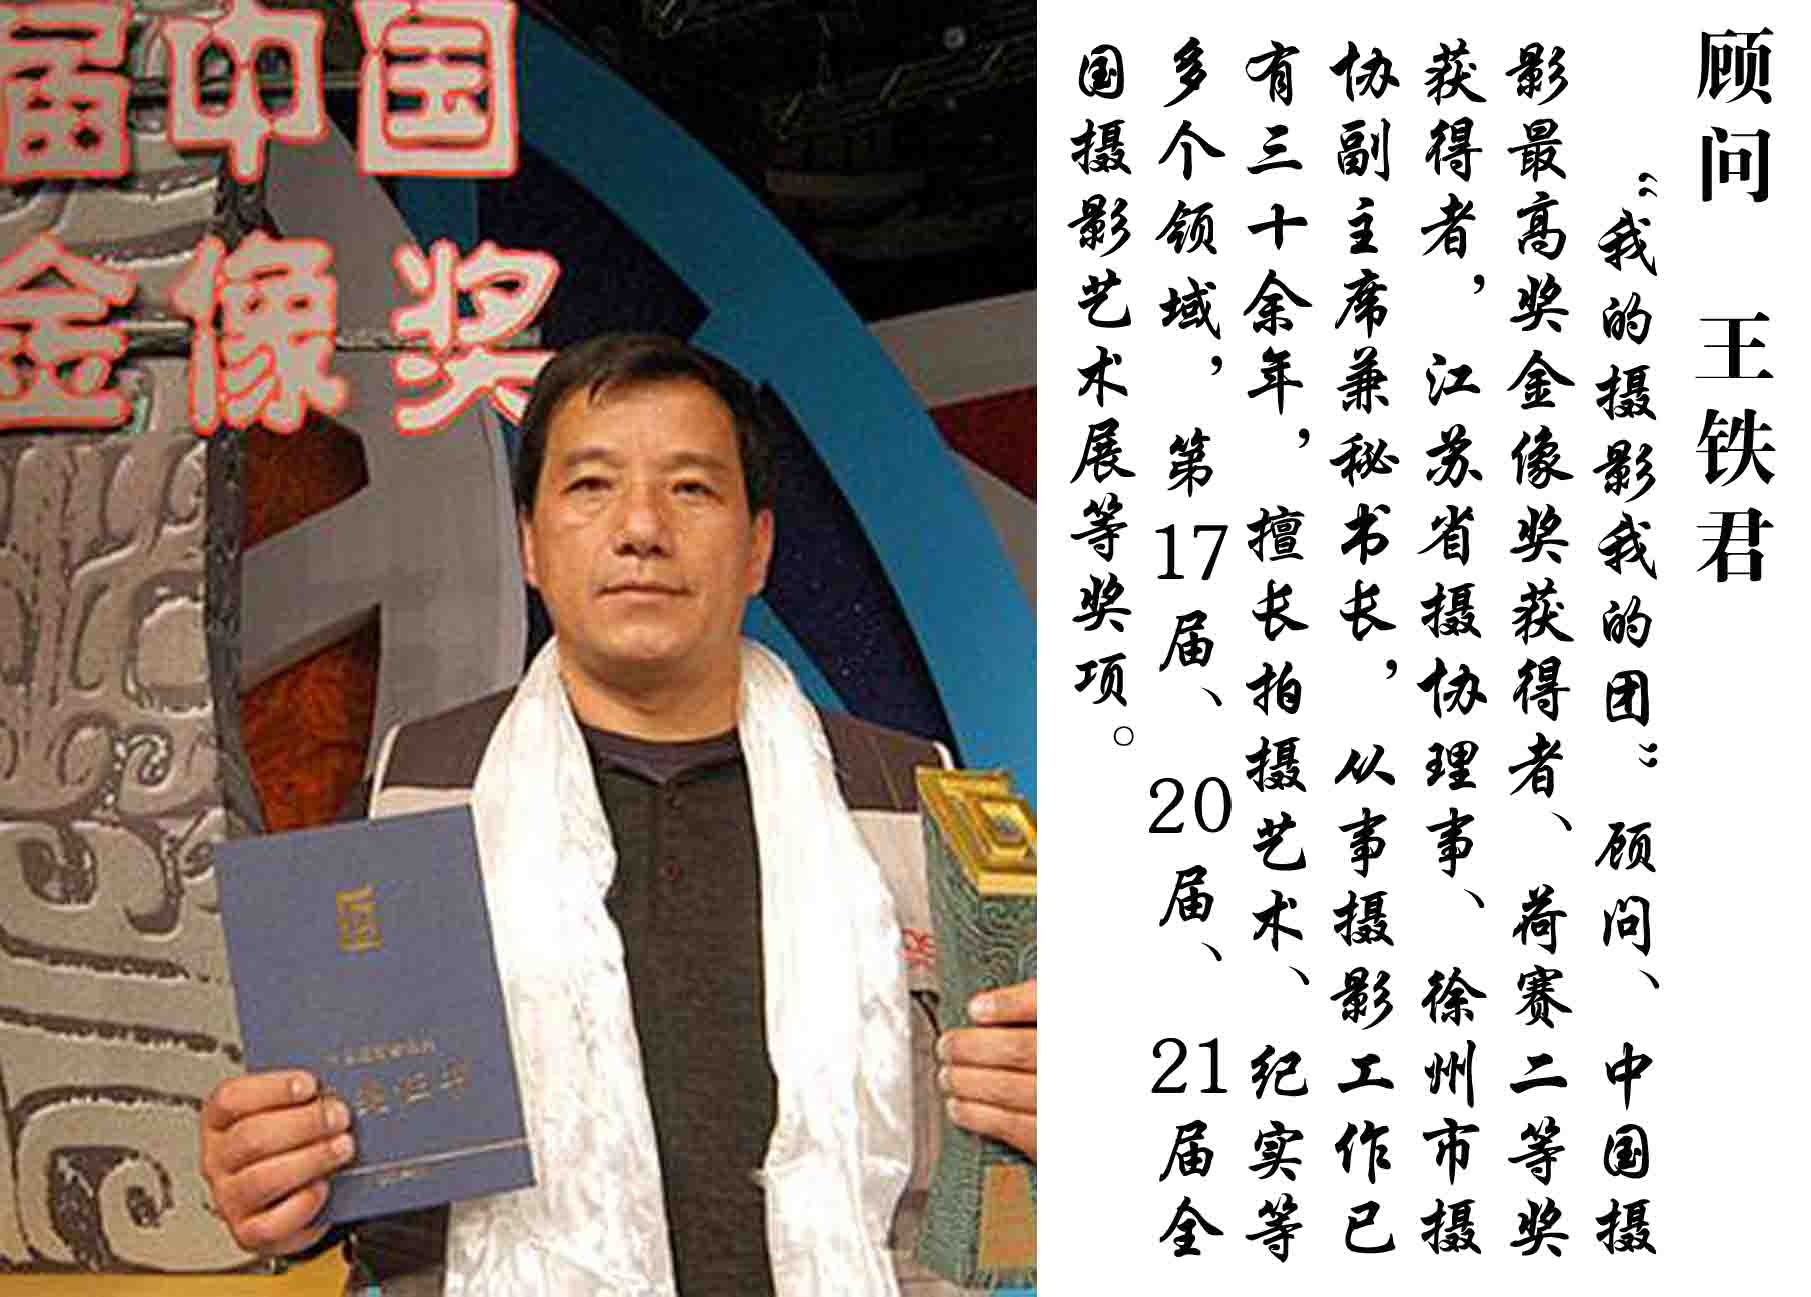 届中国
金像奖
顾问 王铁君
“我的摄影我的团”顾问、中国摄
影最高奖金像奖获得者、荷赛二等奖
获得者，江苏省摄协理事、徐州市摄
协副主席兼秘书长，从事摄影工作已
有三十余年，擅长拍摄艺术、纪实等
多个领域，第17届、20届、21届全
国摄影艺术展等奖项。